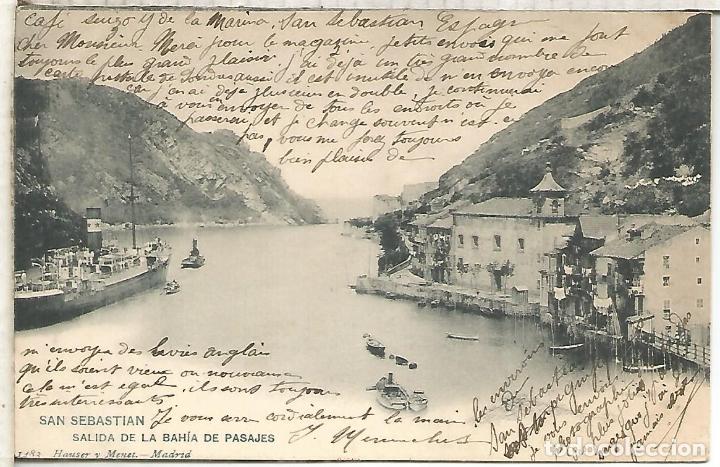 Café suizo y de la Marina, San Sebastian Espagne
cher Monsieur Merci pour le magazine, petits envois qui me font
toujours le plus grand plaisir, j'ai déjà un très grand nombre de
carte postale de aussi il est inutile de m'en envoyer encore
car j'en ai déjà plusieurs en double, je continuerai
à vous envoyer de tous les endroits ou je
passerai, et je change souvent n'est ce
pas, vous me ferez toujours
bien plaisir de
m'envoyer des anglais
qu'ils soient vieux ou nouveaux
cela m'est egal, ils sont toujours
tres interressants
Je vous serre cordialement la main
les environs
de
San Sebastian
sont
SAN SEBASTIAN
SALIDA DE LA BAHÍA DE PASAJES
1182 Hauser y Menet.-Madrid
todocoleccion